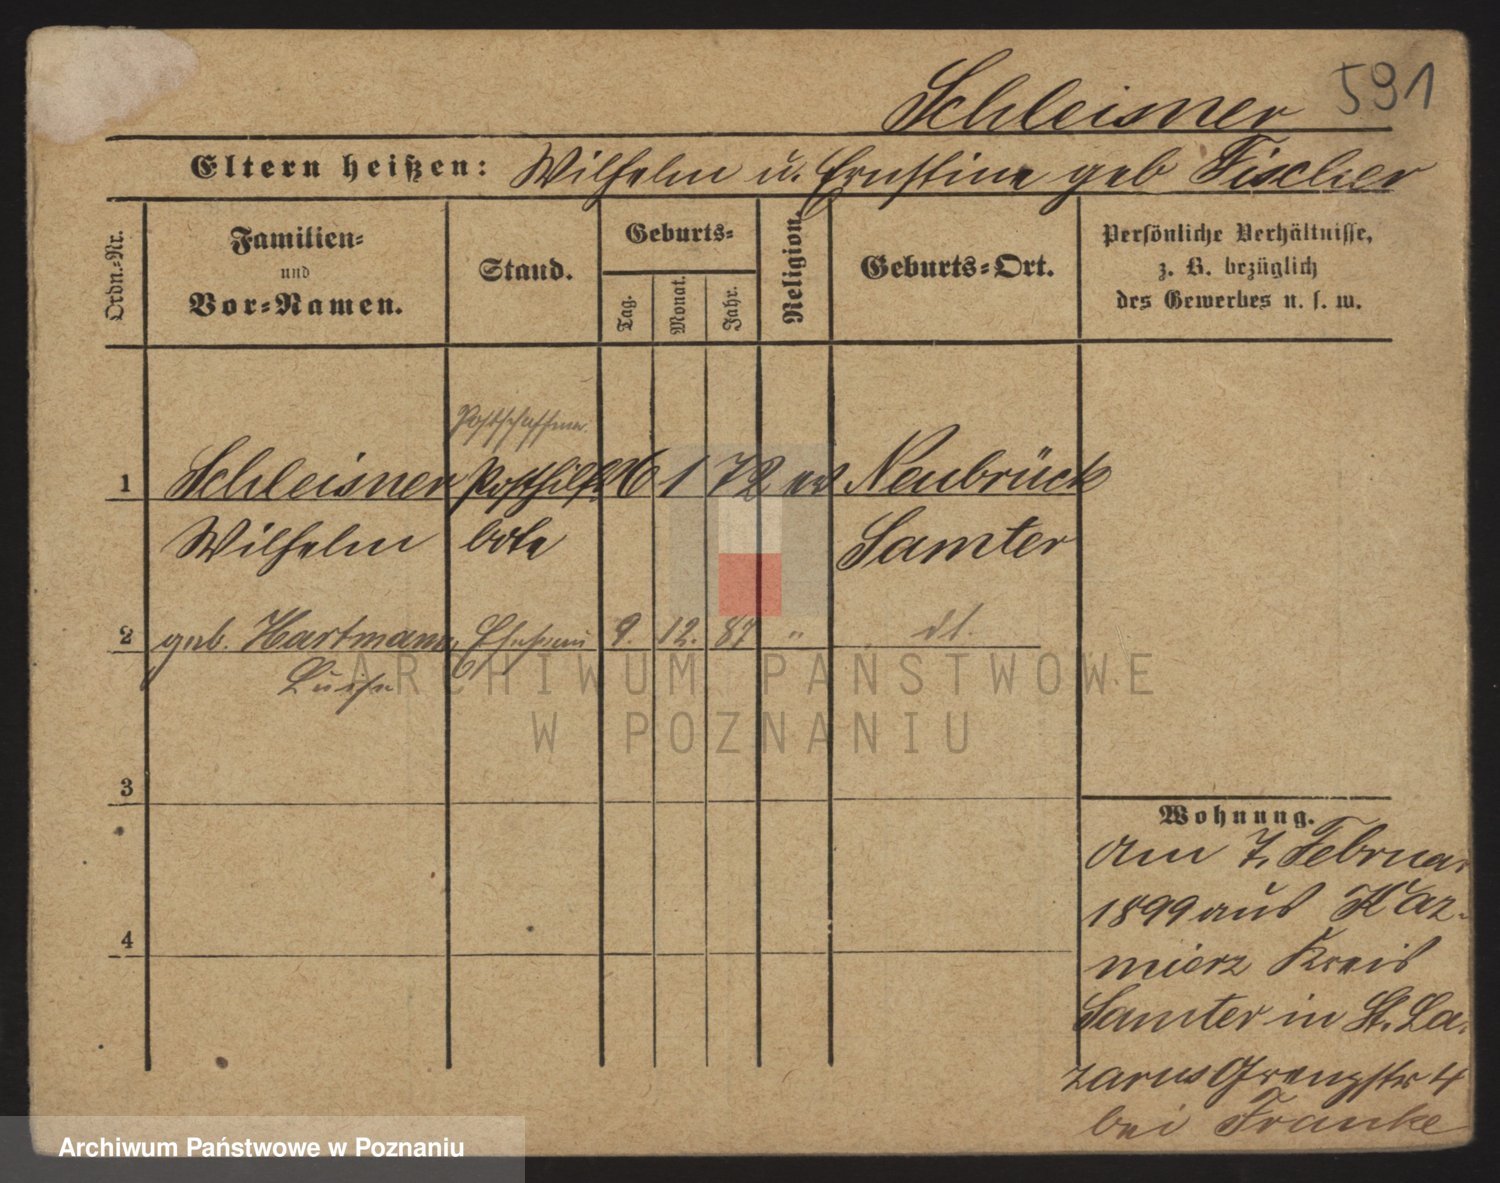 Schleisner 591
Eltern heißen: Wilhelm u. Ernstine geb Fischer
Ordn.-Nr.
Familien-
und
Vor-Namen.
Stand.
Geburts-
Tag.
Monat.
Jahr.
Religion.
Geburts-Ort.
Persönliche Verhältnisse,
z. B. bezüglich
des Gewerbes u. s. w.
Postschaffner
1 Schleisner Posthilfs 26 1 72 ev Neubrück
Wilhelm bote Samter
2 geb. Hartmann, Ehefrau 9. 12. 87 "
Luise
ARCHIWUM PAŃSTWOWE
W POZNANIU
3
4
Wohnung.
am 7. Februar
1899 aus Kaz-
mierz Kreis
Samter in St. La-
zarus Grenzstr 4
bei Franke
Archiwum Państwowe w Poznaniu